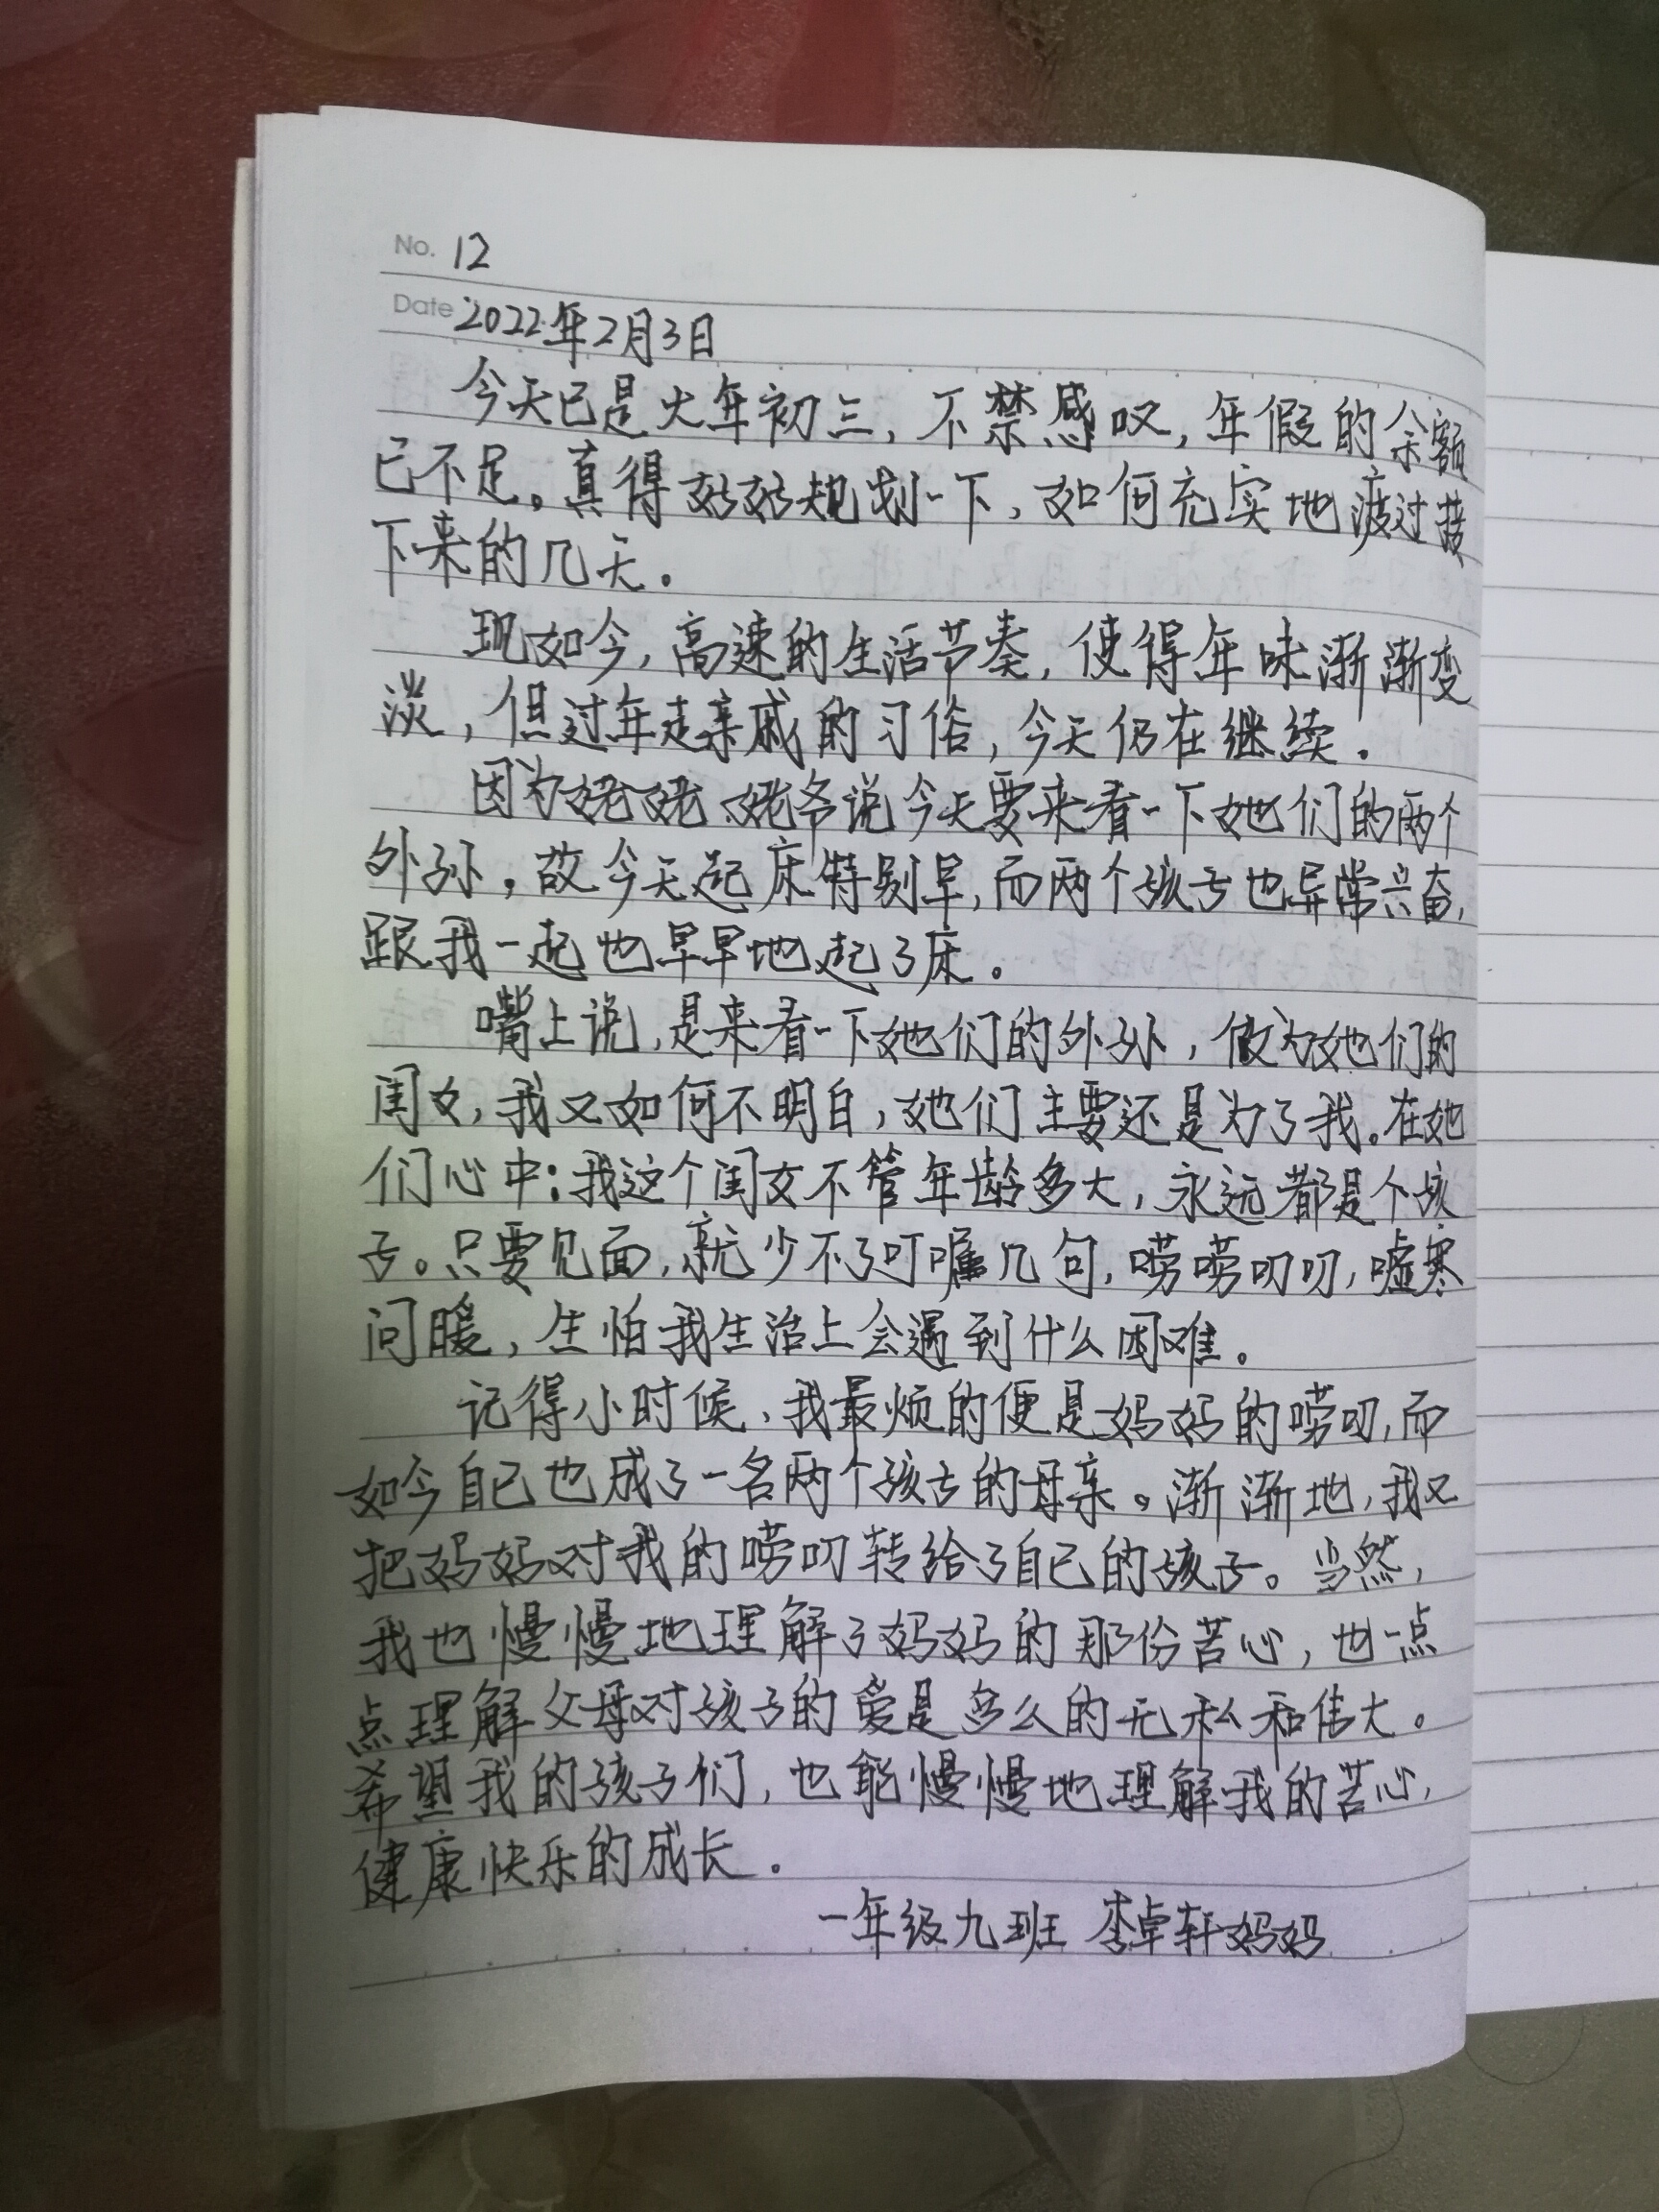 No. 12
Date 2022年2月3日
今天已是大年初三，不禁感叹，年假的余额
已不足。真得好好规划一下，如何充实地渡过接
下来的几天。
现如今，高速的生活节奏，使得年味渐渐变
淡，但过年走亲戚的习俗，今天仍在继续。
因为姥姥、姥爷说今天要来看一下她们的两个
外孙，故今天起床特别早，而两个孩子也异常兴奋，
跟我一起也早早地起了床。
嘴上说，是来看一下她们的外孙，做为她们的
闺女，我又如何不明白，她们主要还是为了我。在她
们心中：我这个闺女不管年龄多大，永远都是个孩
子。只要见面，就少不了叮嘱几句，唠唠叨叨，嘘寒
问暖，生怕我生活上会遇到什么困难。
记得小时候，我最烦的便是妈妈的唠叨，而
如今自己也成了一名两个孩子的母亲。渐渐地，我又
把妈妈对我的唠叨转给了自己的孩子。当然，
我也慢慢地理解了妈妈的那份苦心，也一点
点理解父母对孩子的爱是多么的无私和伟大。
希望我的孩子们，也能慢慢地理解我的苦心，
健康快乐的成长。
一年级九班 李卓轩妈妈